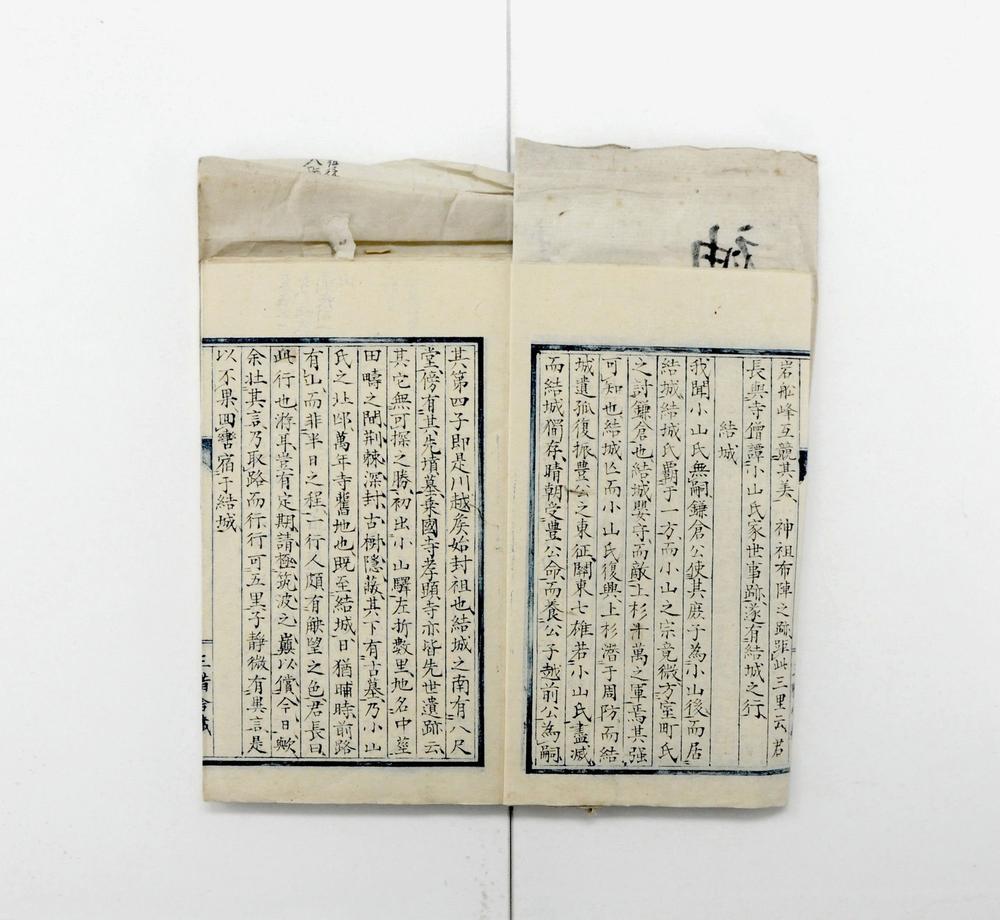 岩舩峰互競其美　神祖布陣之跡距此三里云若
長興寺僧譚小山氏家世事跡遂有結城之行
結城
我聞小山氏無嗣鎌倉公使其庶子為小山後而居
結城結城氏覇于一方而小山之宗竟微方室町氏
之討鎌倉也結城嬰守而敵上杉十萬之軍焉其强
可知也結城亾而小山氏復興上杉潛于周防而結
城遺孤復振豊公之東征關東七雄若小山氏盡滅
而結城獨存晴朝受豊公命而養公子越前公為嗣
其第四子即是川越矦始封祖也結城之南有八尺
堂傍有其先墳墓乗國寺孝顕寺亦皆先世遺跡云
其它無可探之勝初出小山驛左折數里地名中
田疇之間荆棘深封古樹隱蔽其下有古墓乃小山
氏之北邙萬年寺舊地也既至結城日猶晡時前路
有山而非半日之程一行人頗有觖望之色君長曰
此行也游耳豈有定期請極筑波之巓以償今日歟
余壮其言乃取路而行行可五里子静微有異言是
以不果囬轡宿于結城
神